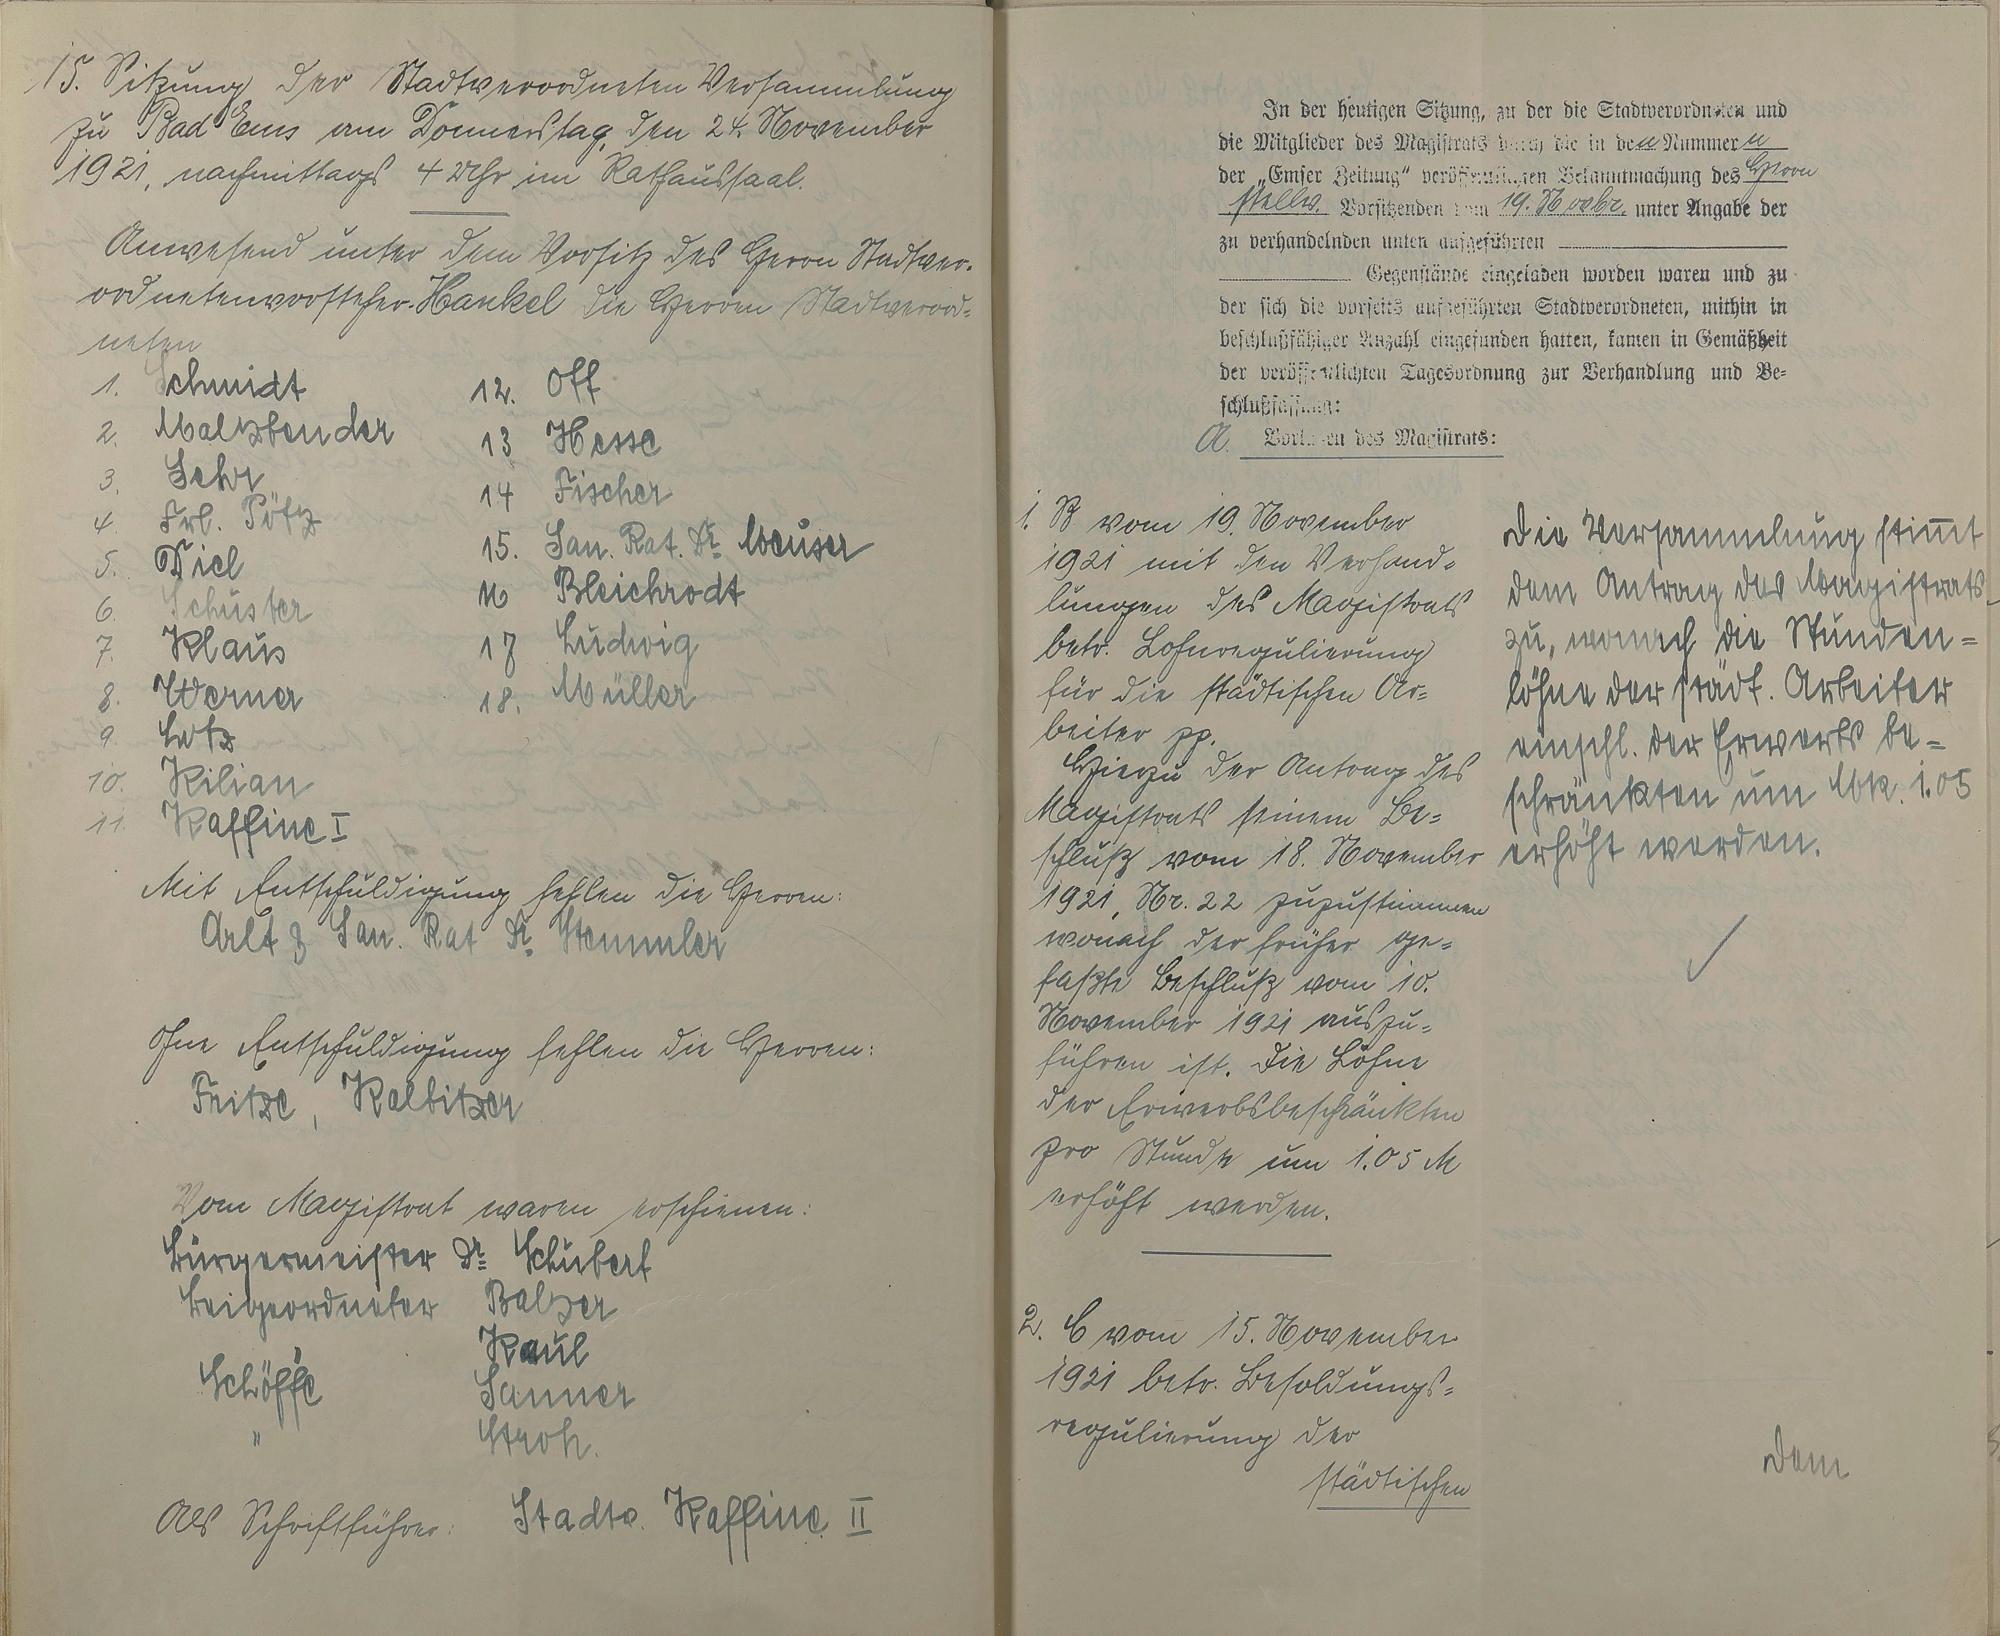 15. Sitzung der Stadtverordneten Versammlung
zu Bad Ems am Donnerstag, den 24. November
1921, nachmittags 4 Uhr im Rathaussaal.
Anwesend unter dem Vorsitz des Herrn Stadtver-
ordnetenvorsteher Hankel die Herren Stadtverord-
neten
1. Schmidt
2. Malzbender
3. Sehr
4. Frl. Pötz
5. Diel
6. Schuster
7. Klaus
8. Werner
9. Lotz
10. Kilian
11. Kaffine I
12. Off
13 Hesse
14 Fischer
15. San. Rat. Dr. Meuser
16 Bleichrodt
17 Ludwig
18. Müller
Mit Entschuldigung fehlen die Herren:
Arlt & San. Rat Dr. Stemmler
Ohne Entschuldigung fehlen die Herren:
Fritze, Kalbitzer
Vom Magistrat waren erschienen:
Bürgermeister Dr. Schubert
Beigeordneter Balzer
Kaul
Schöffe Sanner
" Stroh.
Als Schriftführer: Stadtv. Kaffine II
In der heutigen Sitzung, zu der die Stadtverordneten und
die Mitglieder des Magistrats durch die in den Nummern
der „Emser Zeitung“ veröffentlichten Bekanntmachung des Herrn
stellv. Vorsitzenden vom 19. Novbr. unter Angabe der
zu verhandelnden unten aufgeführten
Gegenstände eingeladen worden waren und zu
der sich die vorseits aufgeführten Stadtverordneten, mithin in
beschlußfähiger Anzahl eingefunden hatten, kamen in Gemäßheit
der veröffentlichten Tagesordnung zur Verhandlung und Be-
schlußfassung:
A. Vorlagen des Magistrats:
1. B vom 19. November
1921 mit den Verhand-
lungen des Magistrats
betr. Lohnregulierung
für die städtischen Ar-
beiter pp.
Hierzu der Antrag des
Magistrats seinem Be-
schluß vom 18. November
1921, Nr. 22 zuzustimmen
wonach der früher ge-
faßte Beschluß vom 10.
November 1921 auszu-
führen ist. Die Löhne
der Erwerbsbeschränkten
pro Stunde um 1.05 M
erhöht werden.
Die Versammlung stimt
dem Antrag des Magistrats
zu, wonach die Stunden-
löhne der städt. Arbeiter
einschl. der Erwerbs be-
schränkten um Mk. 1.05
erhöht werden.
2. C vom 15. November
1921 betr. Besoldungs-
regulierung der
städtischen
Dem